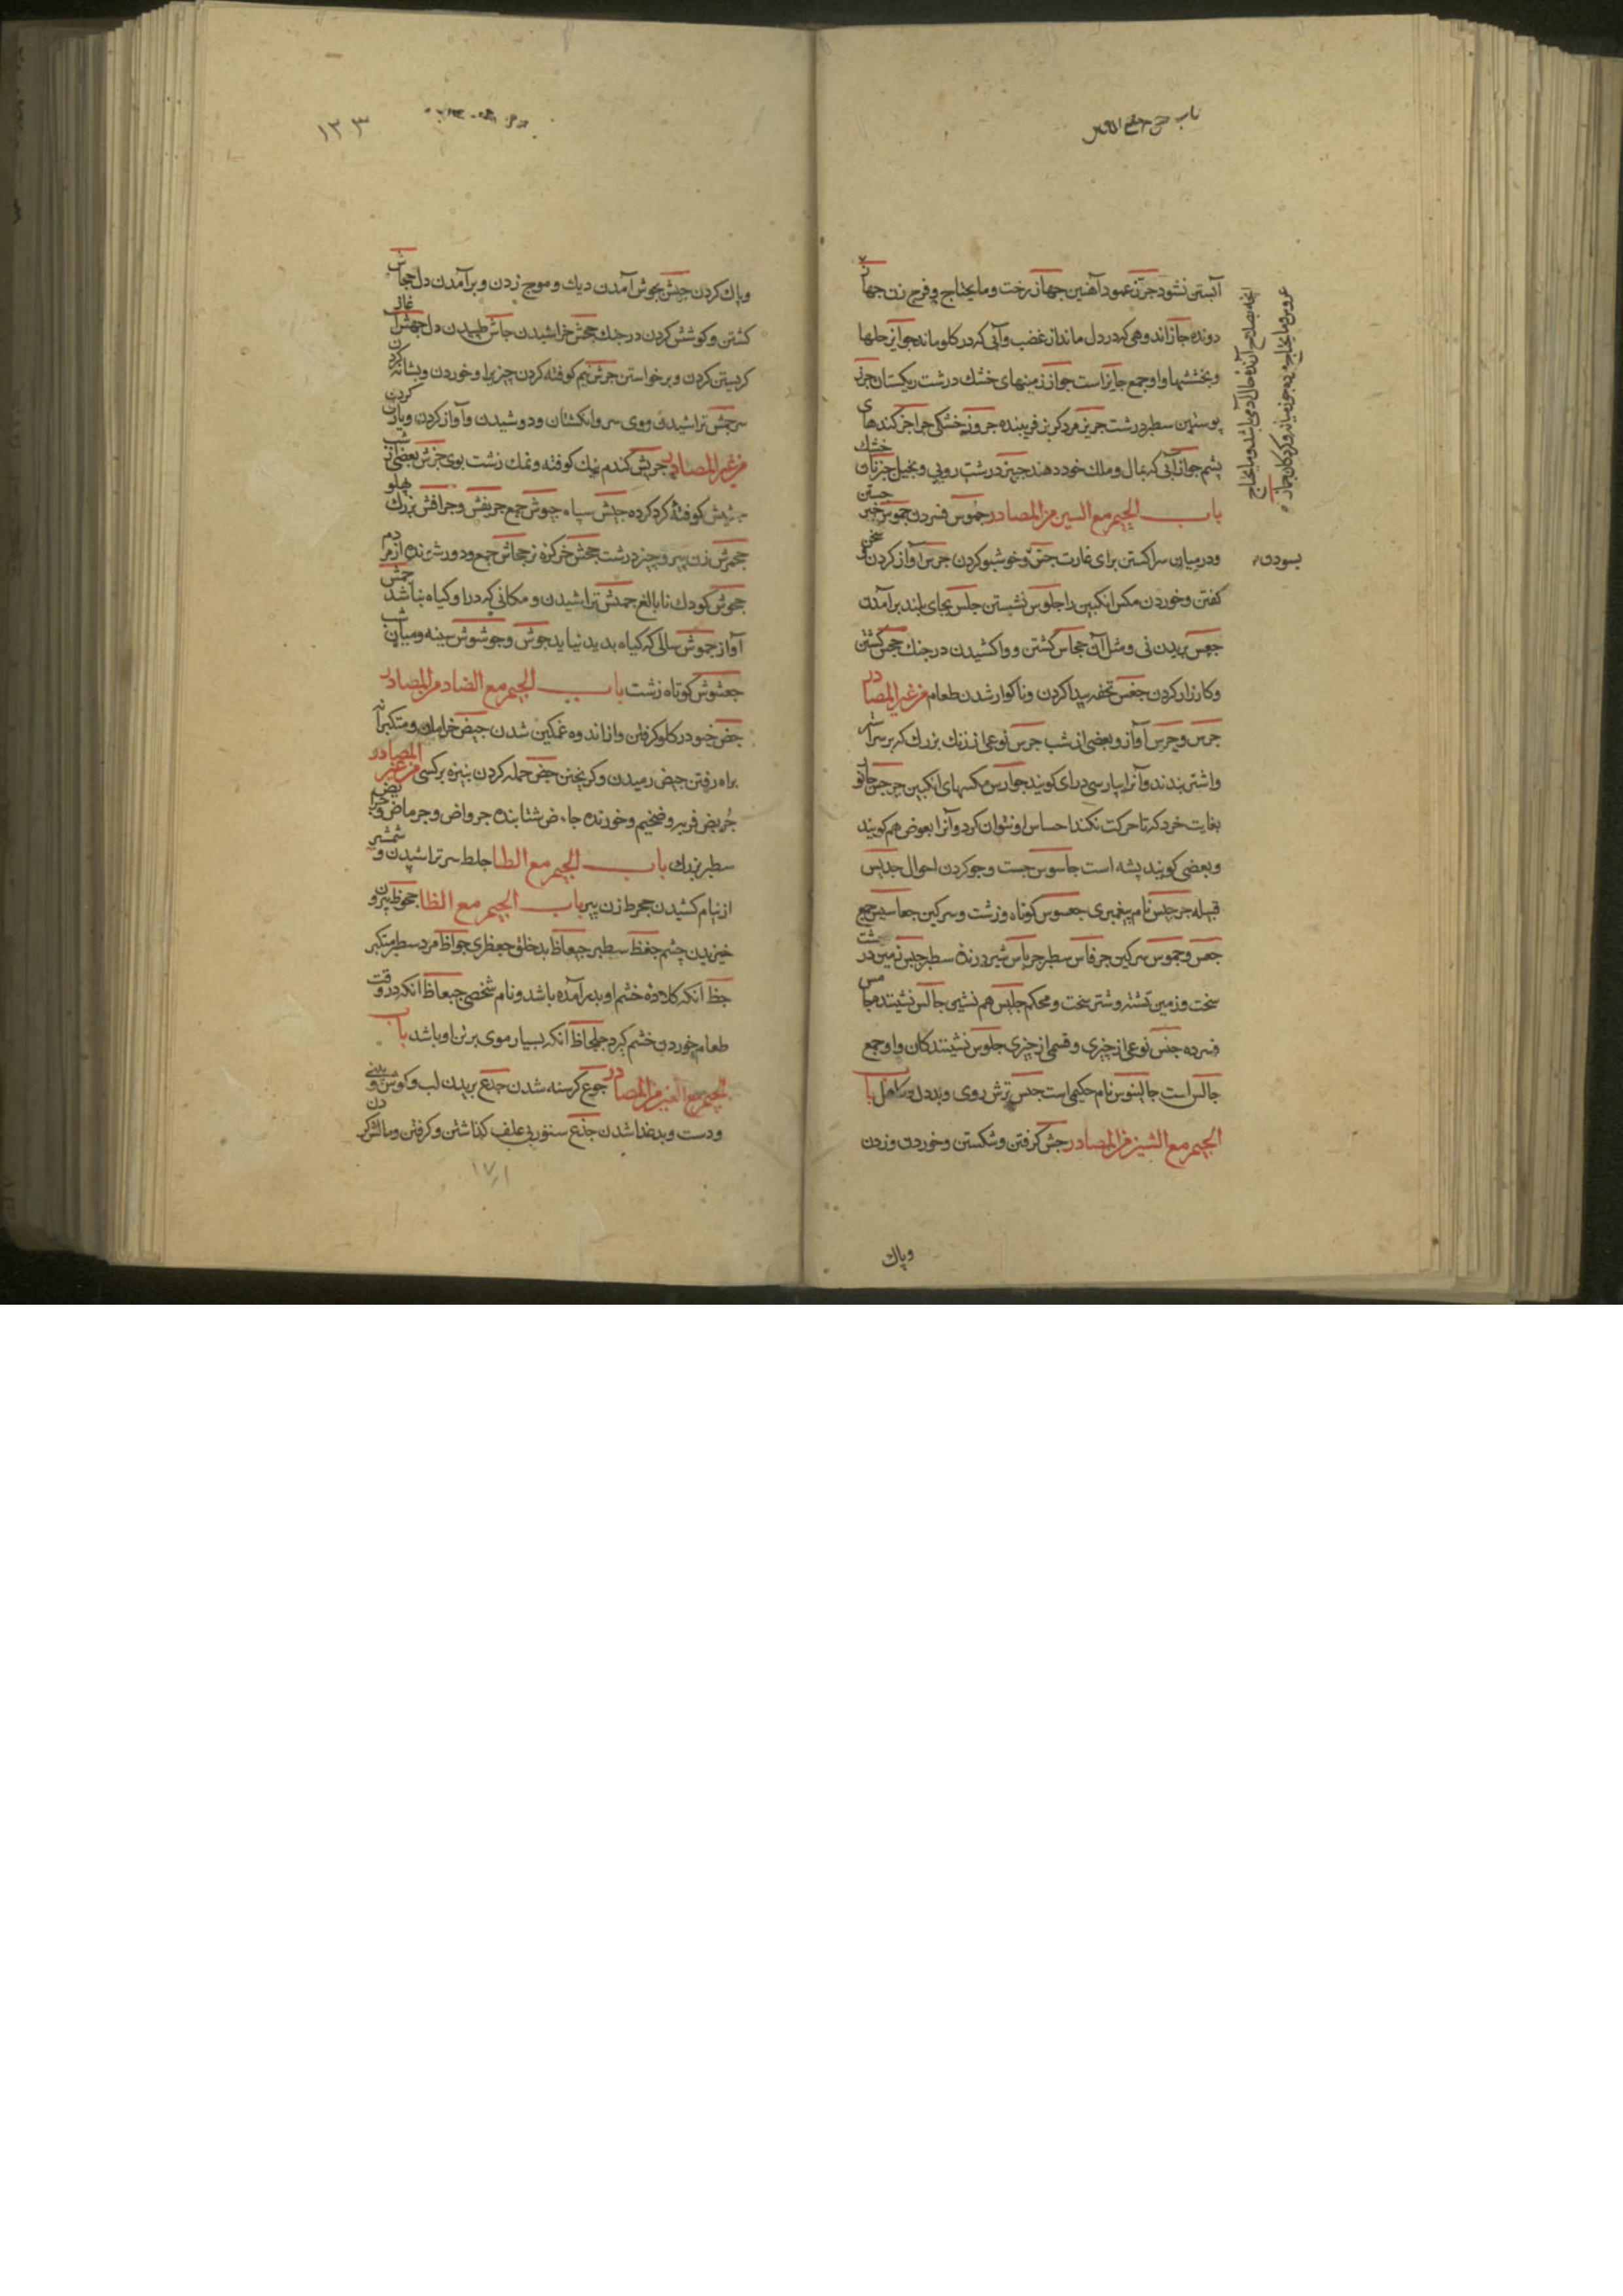 آبستن نشود جرز عمود آهنین جهاز رخت و مایحتاج و فرج زن جهاز
دونده جاز اندوهی که در دل ماند از غضب و آبی که در کلو ماند جوایز صلها
و بخششها و او جمع جایزاست جواز زمینهای خشک درشت ریکستان جرز
پوستین سطبر درشت جربز مرد کربز فریبنده جروز خشکی جراجز کندهای
پشم جواز آبی که بمال و ملک خود دهند جبیز درشت رویی و بخیل جزنان خشک
باب الجیم مع السین من المصادر جموس فسردن جوس خبر جستن
و در میان سرا کشتن برای غارت جس و خوشبو کردن جرس آواز کردن و سخن
بسودن
کفتن و خوردن مکس انکبین را جلوس نشستن جلس بجای بلند برآمدن
جعس بریدن نی و مثل آن جحاس کشتن و واکشیدن در جنک جحس کشتن
و کارزار کردن جفس تخمه پیدا کردن و ناکوار شدن طعام من غیر المصادر
جرس و جرس آواز و بعضی از شب جرس نوعی از زنک بزرک که بر سر اشتر
و اشتر بندند و آنرا بپارسی درای کویند جوارس مکسهای انکبین جرجس جانور
بغایت خرد که تا حرکت نکند احساس او نتوان کرد و آنرا بعوض هم کویند
و بعضی کویند پشه است جاسوس جست و جو کردن احوال جدیس
قبیله جرجیس نام پیغمبری جعسوس کوتاه و زشت و سرکین جعاسیس جمع
جعس و جموس سرکین جرفاس سطبر جرباس شیر درنده سطبر جبس زمین درشت
سخت و زمین تشنه و شتر سخت و محکم جلیس هم نشین جالس نشیننده جامس
فسرده جنس نوعی از چیزی و قسمی از چیزی جلوس نشینندکان و او جمع
جالس است جالینوس نام حکیمی است جبس ترش روی و بددل و کاهل باب
الجیم مع الشین من المصادر جش کرفتن و شکستن و خوردن و زدن
و پاک
۱۲۳
و پاک کردن جیش بجوش آمدن دیک و موج زدن و برآمدن دل جحاش
کشتن و کوشش کردن در جنک جحش خراشیدن جاش طپیدن دل جهش آغاز
کریستن کردن و برخواستن جرش نیم کوفته کردن چیزیرا و خوردن و بشانه کردن
سر جمش تراشیدن موی سر و انکشتان و دوشیدن و آواز کردن و بازی کردن
من غیر المصادر جریش کندم نیک کوفته و نمک زشت بوی جرش بعضی از شب
جشیش کوفته کرد کرده جیش سپاه جیوش جمع جرنفش و جرافش بزرک پهلو
جحمرش زن پیر و چیز درشت جحش خرکره نر جحاش جمع و دور شونده از مردم
جحوش کودک نابالغ جمش تراشیدن و مکانی که در او کیاه نباشد جمش
آواز جموش سالی که کیاه پدید نیاید جوش و جوشوش سینه و میان شب
جعشوش کوتاه زشت باب الجیم مع الضاد من المصادر
جض خیو در کلو کرفتن و از اندوه غمکین شدن جیض خرامان و متکبرانه
براه رفتن جیض رمیدن و کریختن جض حمله کردن بنیزه بر کسی من غیر المصادر
جریض فربه و ضخیم و خورنده جاهض شتابنده جرواض و جرماض و جرایض
سطبر بزرک باب الجیم مع الطا جلط سر تراشیدن و شمشیر
از نیام کشیدن جحرط زن پیر باب الجیم مع الظا جحوظ بیرون
خیزیدن چشم جفظ سطبر جعاظ بدخلق جعظری جواظ مرد سطبر متکبر
جظ آنکه کلاده خشم او بدر آمده باشد و نام شخصی جعاظ آنکه در وقت
طعام خوردن خشم کیرد جلحاظ آنکه بسیار موی بر تن او باشد باب
الجیم مع العین من المصادر جوع کرسنه شدن جدع بریدن لب و کوش و بینی
و دست و بد غذا شدن جذع ستور بی علف کذاشتن و کرفتن و مالش کردن
۱۷۱